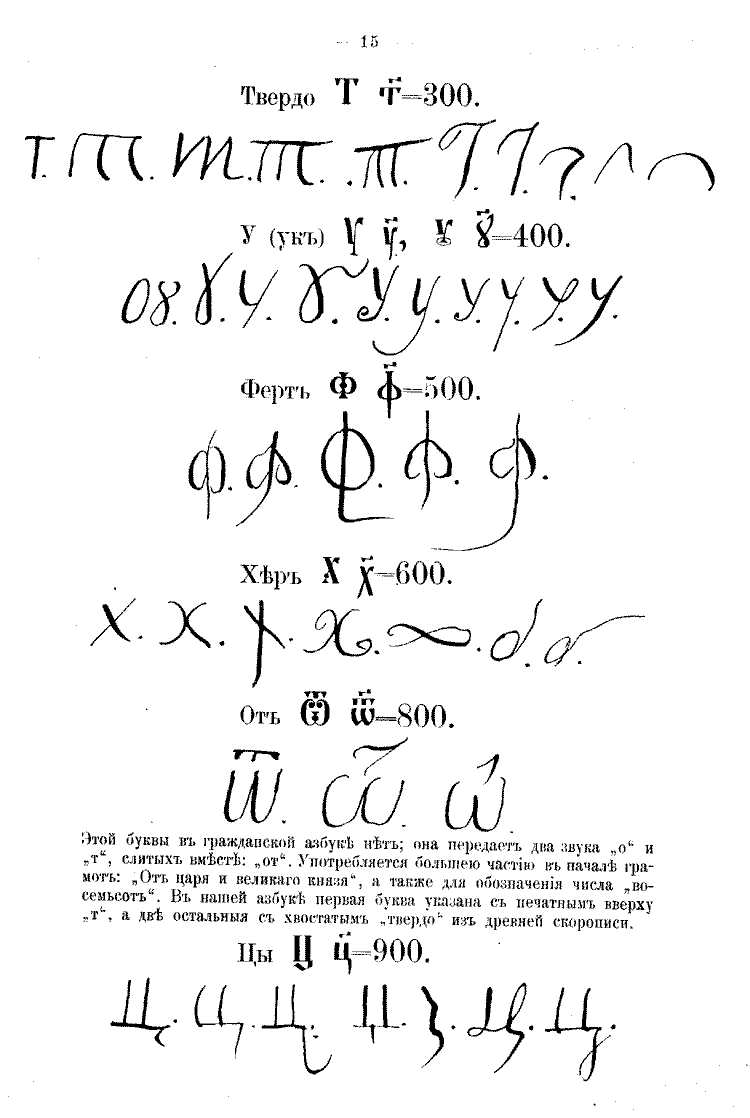 — 15
Твердо Т т҃=300.
Т. Т. Т. Т. Т. Т. Т. Т.
У (укъ) Ѵ ѵ҃, Ꙋ ꙋ҃=400.
ОУ. Ꙋ. У. Ꙋ. У. У. У. У. У. У.
Фертъ Ф ф҃=500.
Ф. Ф. Ф. Ф. Ф.
Хѣръ Х х҃=600.
Х. Х. Х. Х. Х. Х. Х.
Отъ Ѿ ѿ҃=800.
Ѿ. Ѿ. Ѿ.
Этой буквы въ гражданской азбукѣ нѣтъ; она передаетъ два звука „о“ и
„т“, слитыхъ вмѣстѣ: „от“. Употребляется большею частію въ началѣ гра-
мотъ: „Отъ царя и великаго князя“, а также для обозначенія числа „во-
семьсотъ“. Въ нашей азбукѣ первая буква указана съ печатнымъ вверху
„т“, а двѣ остальныя съ хвостатымъ „твердо“ изъ древней скорописи.
Цы Ц ц҃=900.
Ц. Ц. Ц. Ц. Ц. Ц. Ц.